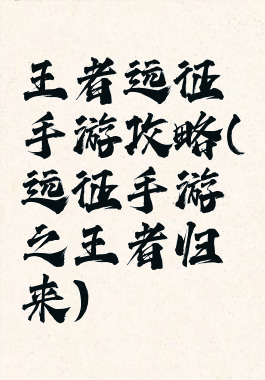 王者远征
手游攻略(
远征手游
之王者归
来)